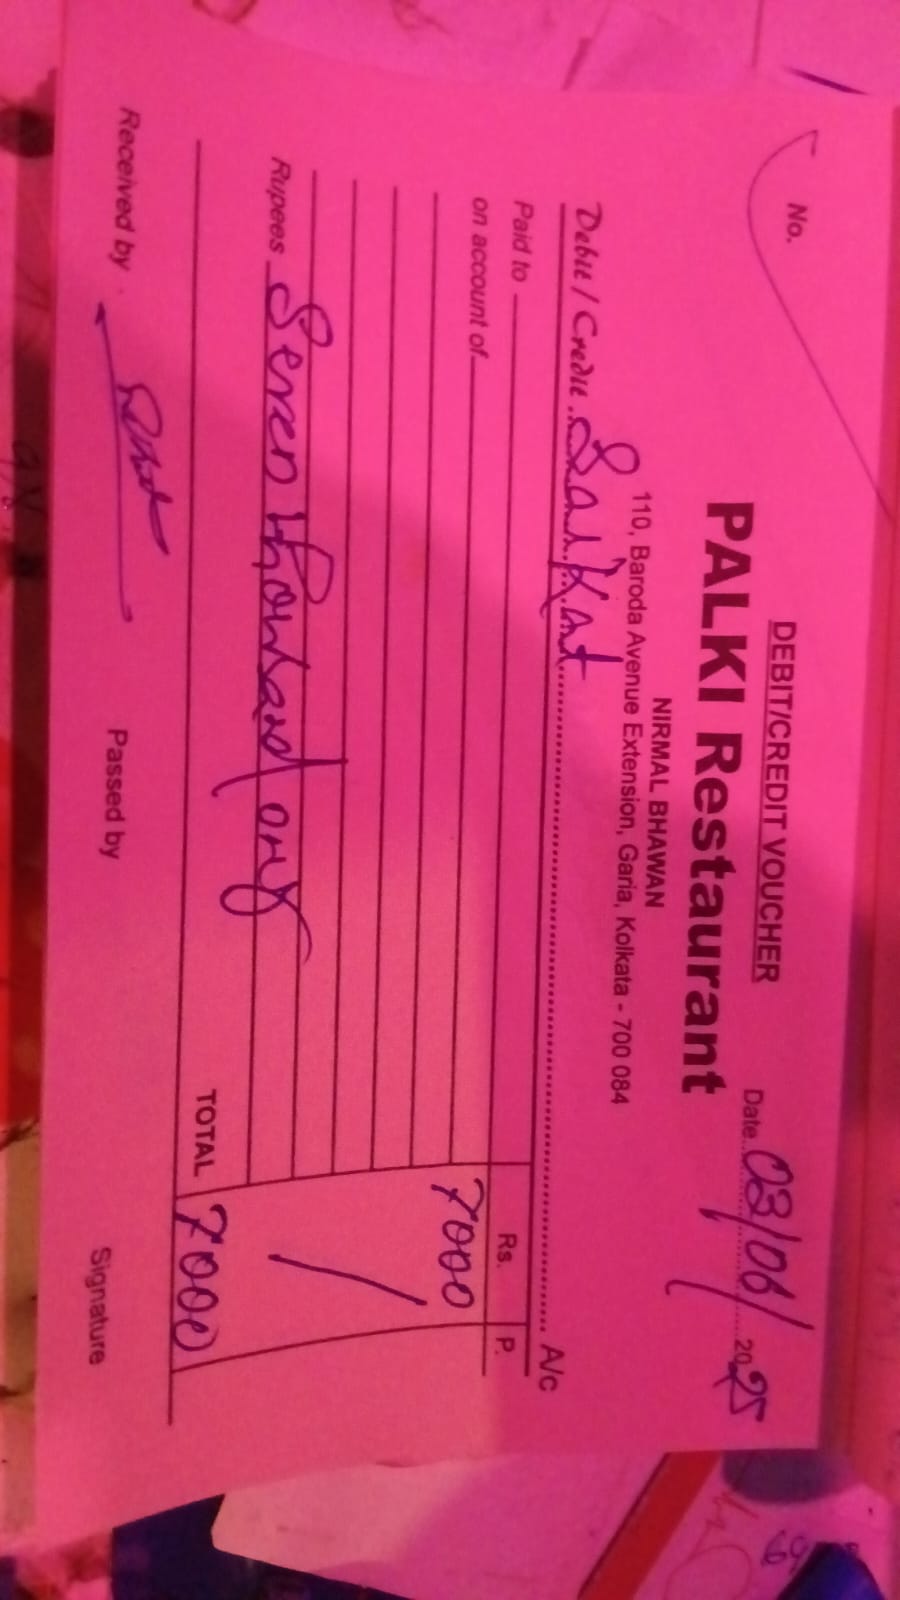 DEBIT/CREDIT VOUCHER
No.
Date 03/06/ 2025
PALKI Restaurant
NIRMAL BHAWAN
110, Baroda Avenue Extension, Garia, Kolkata - 700 084
Debit / Credit Sasi Kant A/c
Paid to
Rs. P.
on account of
7000
Rupees Seven thousand only
TOTAL 7000
Received by
Passed by
Signature